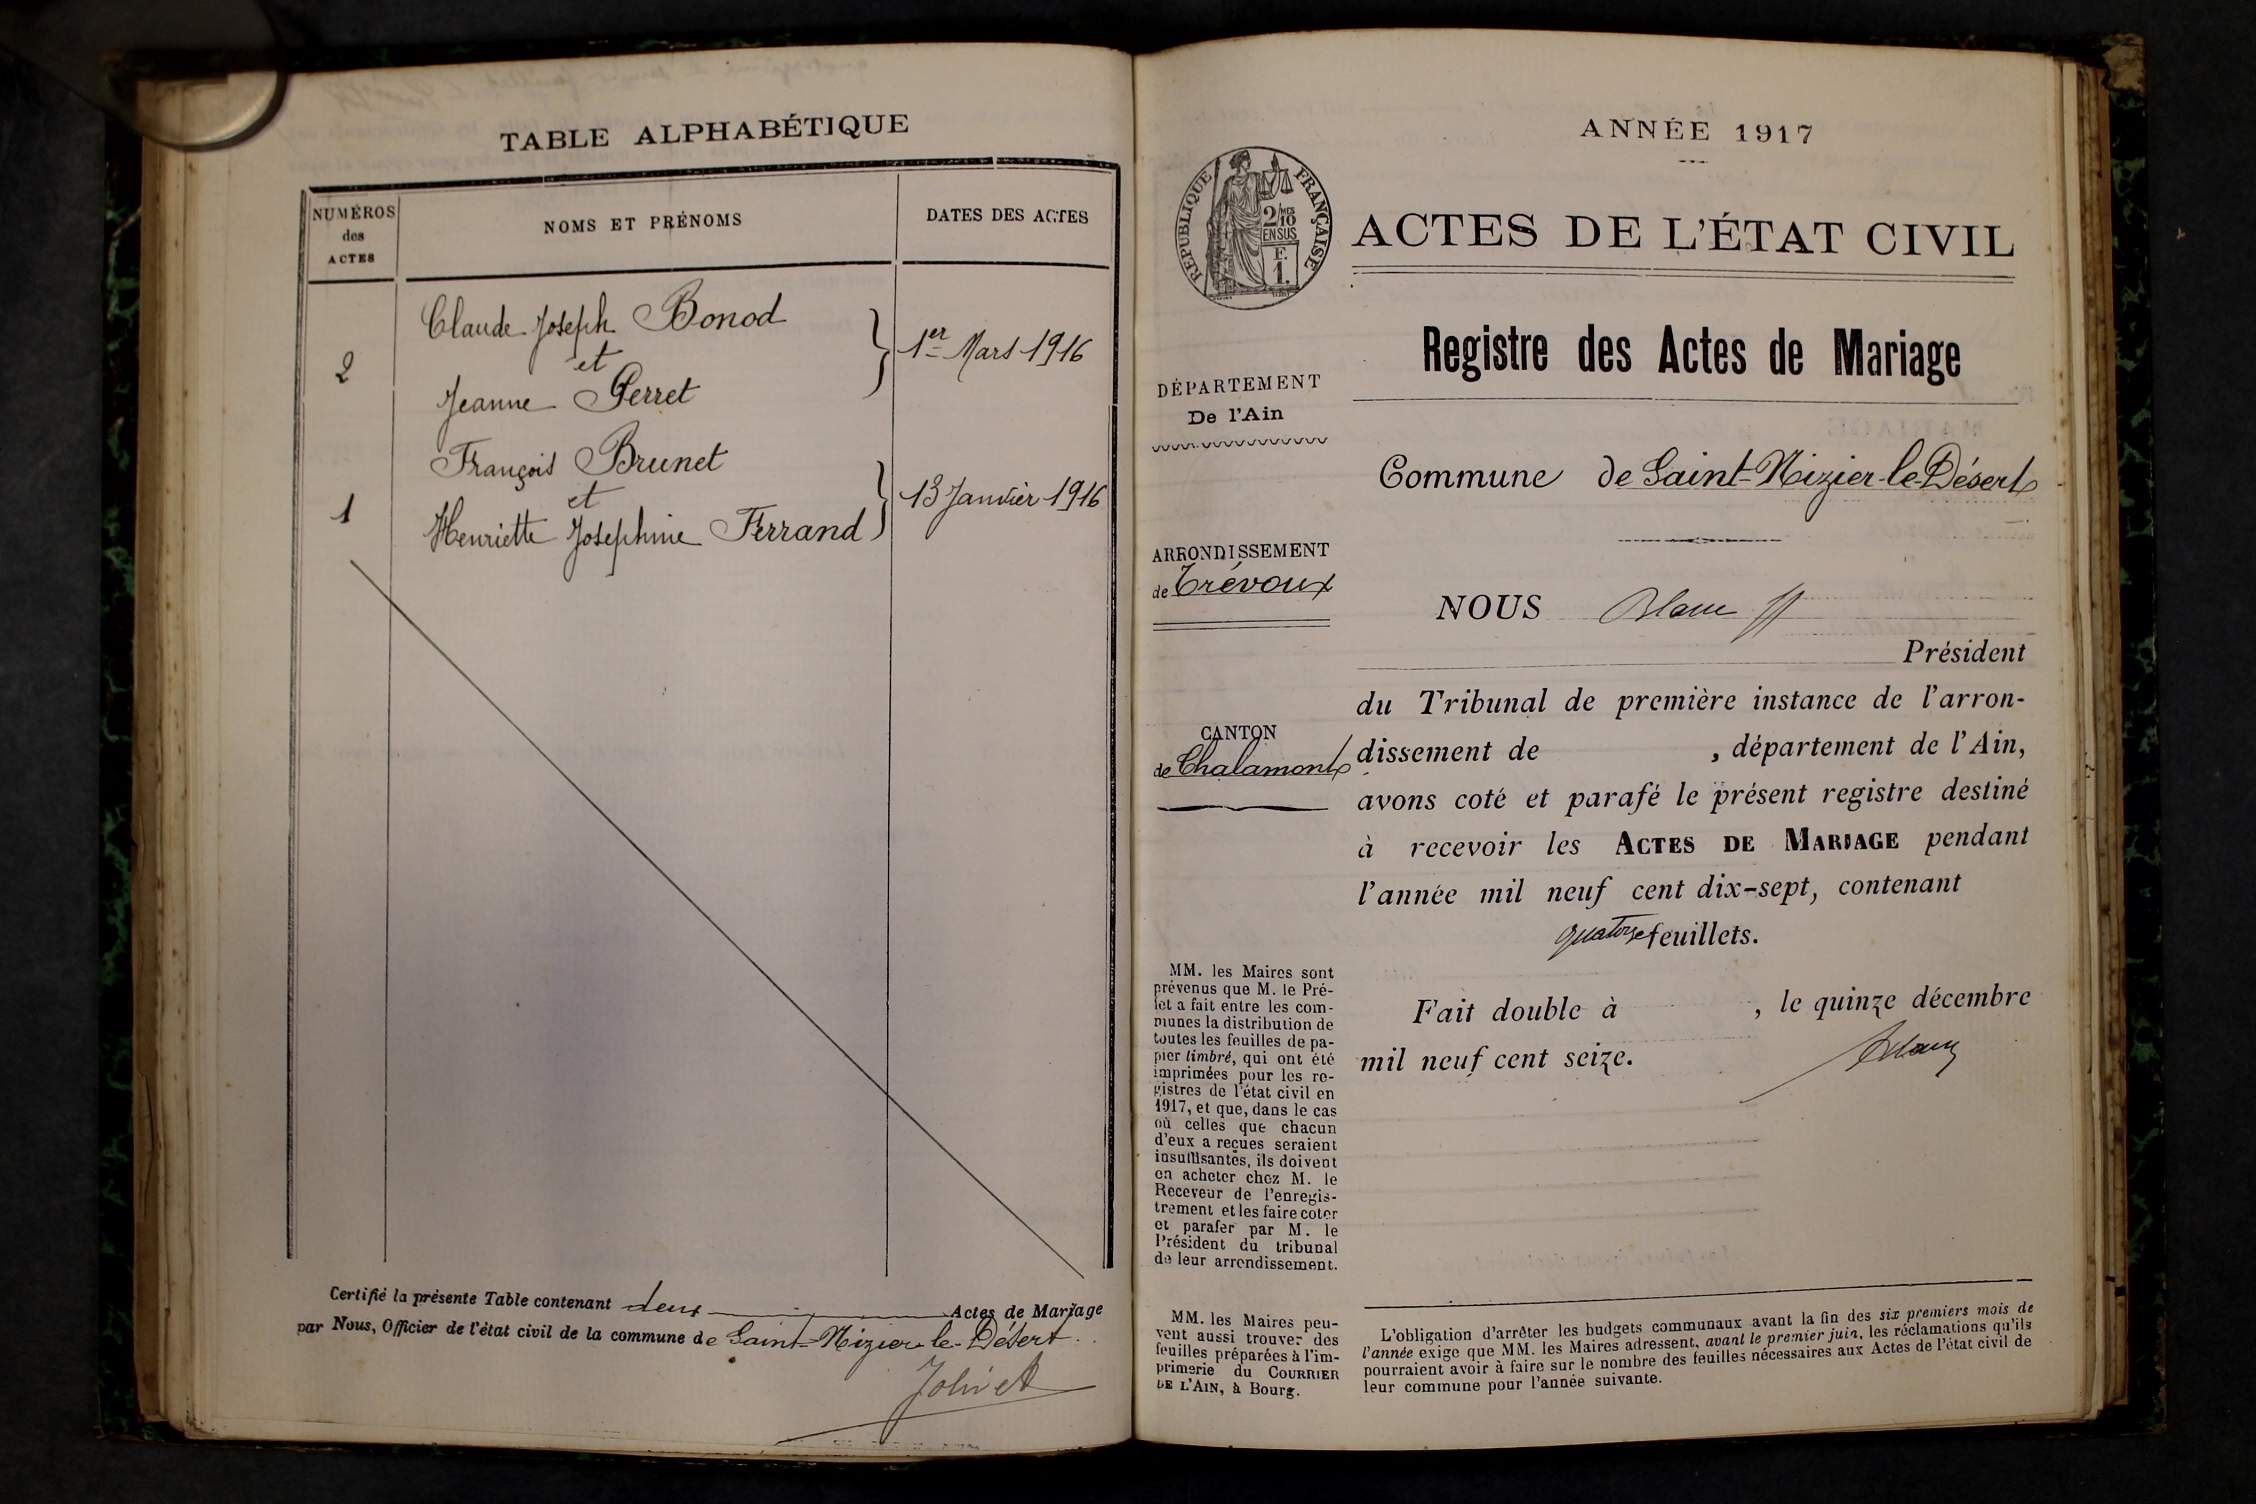 TABLE ALPHABÉTIQUE
NUMÉROS
des
ACTES
NOMS ET PRÉNOMS
DATES DES ACTES
Claude Joseph Bonod
2
et
1er Mars 1916
Jeanne Perret
François Brunet
1
et
13 Janvier 1916
Henriette Josephine Ferrand
Certifié la présente Table contenant deux Actes de Mariage
par Nous, Officier de l'état civil de la commune de Saint-Nizier-le-Désert.
Jolivet
ANNÉE 1917
RÉPUBLIQUE FRANÇAISE
2/MES
10
EN SUS
F.
1.
ACTES DE L'ÉTAT CIVIL
Registre des Actes de Mariage
DÉPARTEMENT
De l'Ain
Commune de Saint-Nizier-le-Désert
ARRONDISSEMENT
de Trévoux
CANTON
de Chalamont
NOUS Blanc
Président
du Tribunal de première instance de l'arron-
dissement de , département de l'Ain,
avons coté et parafé le présent registre destiné
à recevoir les ACTES DE MARIAGE pendant
l'année mil neuf cent dix-sept, contenant
quatorze feuillets.
Fait double à , le quinze décembre
mil neuf cent seize.
Blanc
MM. les Maires sont
prévenus que M. le Pré-
fet a fait entre les com-
munes la distribution de
toutes les feuilles de pa-
pier timbré, qui ont été
imprimées pour les re-
gistres de l'état civil en
1917, et que, dans le cas
où celles que chacun
d'eux a reçues seraient
insuffisantes, ils doivent
en acheter chez M. le
Receveur de l'enregis-
trement et les faire coter
et parafer par M. le
Président du tribunal
de leur arrondissement.
MM. les Maires peu-
vent aussi trouver des
feuilles préparées à l'im-
primerie du COURRIER
DE L'AIN, à Bourg.
L'obligation d'arrêter les budgets communaux avant la fin des six premiers mois de
l'année exige que MM. les Maires adressent, avant le premier juin, les réclamations qu'ils
pourraient avoir à faire sur le nombre des feuilles nécessaires aux Actes de l'état civil de
leur commune pour l'année suivante.